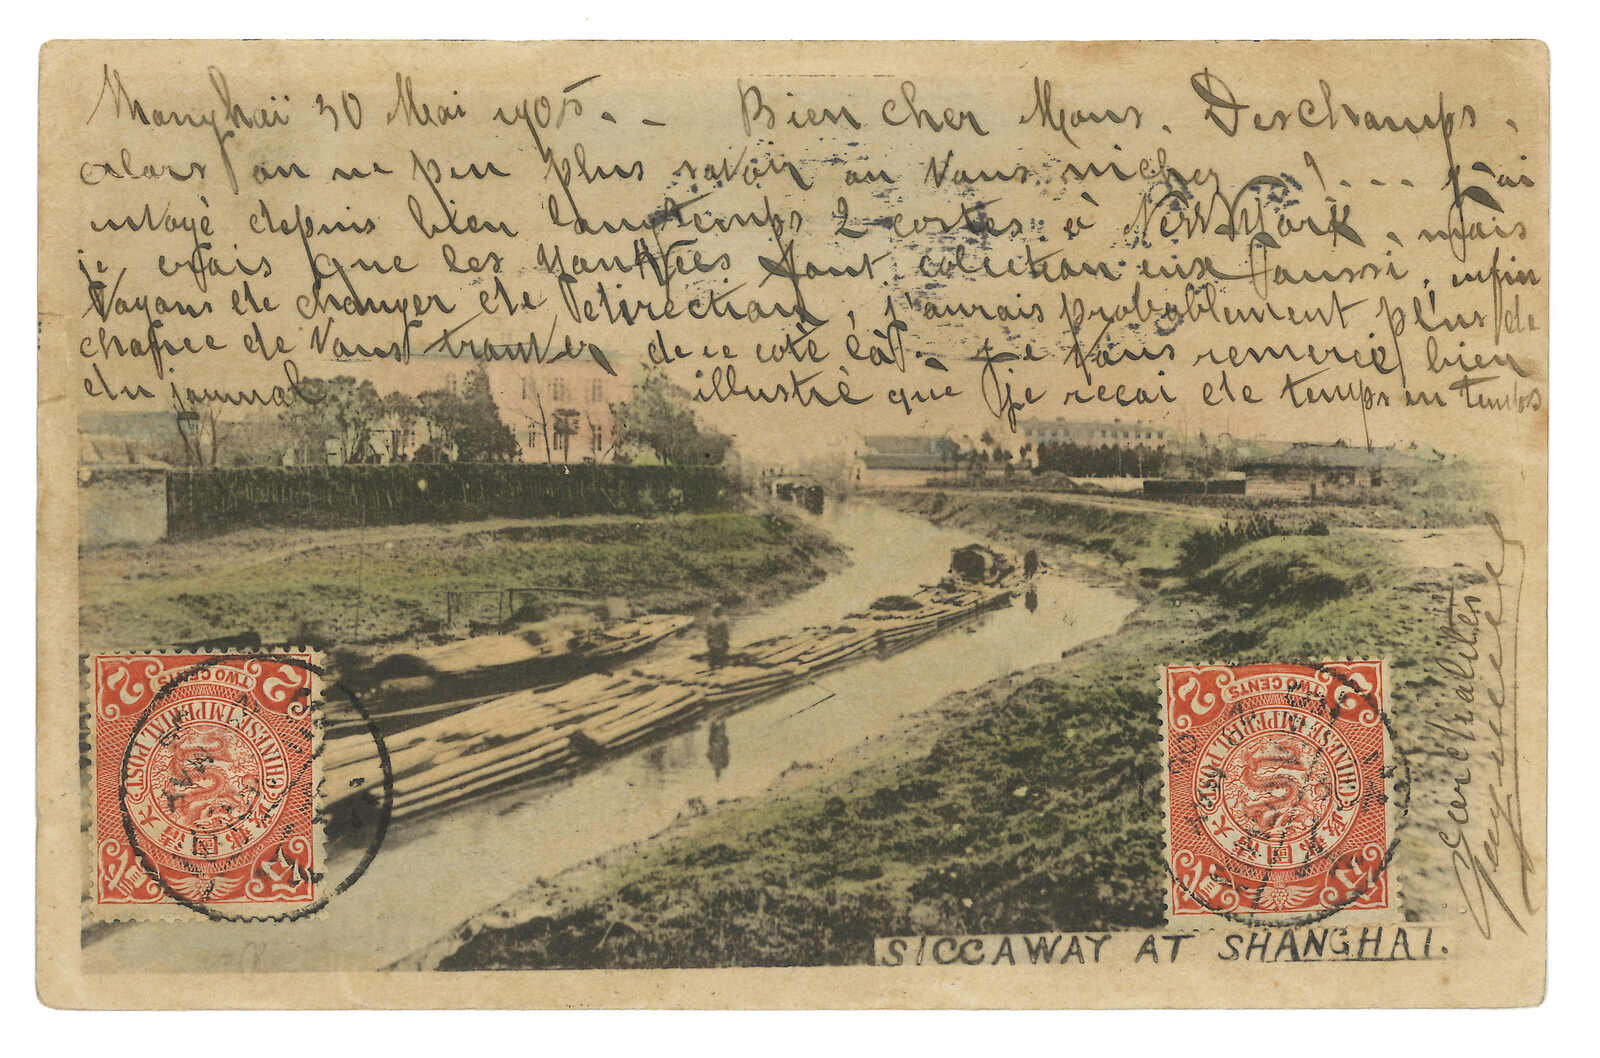 Shanghaï 30 Mai 1905. - Bien cher Mons. Deschamps.
alors on ne peu plus savoir ou Vous nicher ! ... j'ai
envoyé depuis bien longtemps 2 cartes à New York, mais
je crois que les Yankees font colection eux aussi, enfin
Vayons de changer de direction, j'aurais probablement plus de
chance de Vous trouver de ce coté là. Je Vous remercie bien
du journal illustré que je reçai de temps en temps
Cordialités
SICCAWAY AT SHANGHAI.
CHINESE IMPERIAL POST
TWO CENTS
2 2
大清國郵政
CHINESE IMPERIAL POST
TWO CENTS
2 2
大清國郵政